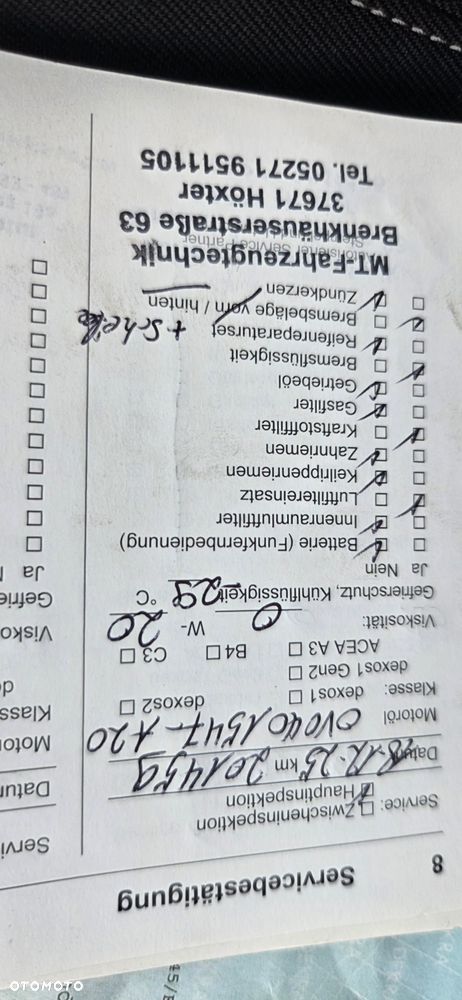 8 Servicebestätigung
Service: Zwischeninspektion
Hauptinspektion
Datum 18.12.25 km 201459
Motoröl OV040 1547-A20
Klasse: dexos1 dexos2
dexos1 Gen2
ACEA A3 B4 C3
Viskosität: 0 W- 20
Gefrierschutz, Kühlflüssigkeit -29 °C
Ja Nein
Batterie (Funkfernbedienung)
Innenraumluftfilter
Luftfiltereinsatz
Keilrippenriemen
Zahnriemen
Kraftstofffilter
Gasfilter
Getriebeöl
Bremsflüssigkeit
Reifenreparaturset
Bremsbeläge vorn / hinten + Scheibe
Zündkerzen
MT-Fahrzeugtechnik
Autorisierter Service Partner
Brenkhäuserstraße 63
37671 Höxter
Tel. 05271 9511105
Servi
Datur
Motor
Klass
Visko
Gefrie
Ja
OTOMOTO